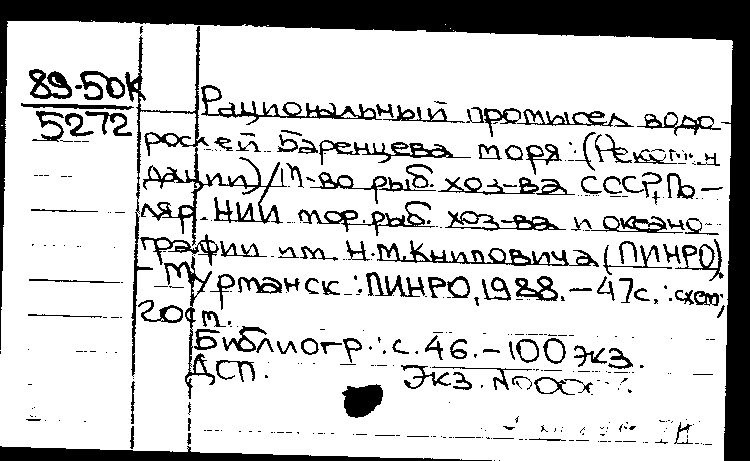 89-50К
5272
Рациональный промысел водо-
рослей Баренцева моря: (Рекомен
дации)/М-во рыб. хоз-ва СССР, По-
ляр. НИИ мор. рыб. хоз-ва и океано-
графии им. Н.М. Книповича (ПИНРО).
- Мурманск: ПИНРО, 1988. - 47с.: схем;
20см.
Библиогр.: с. 46. - 100 экз.
ДСП. Экз. №